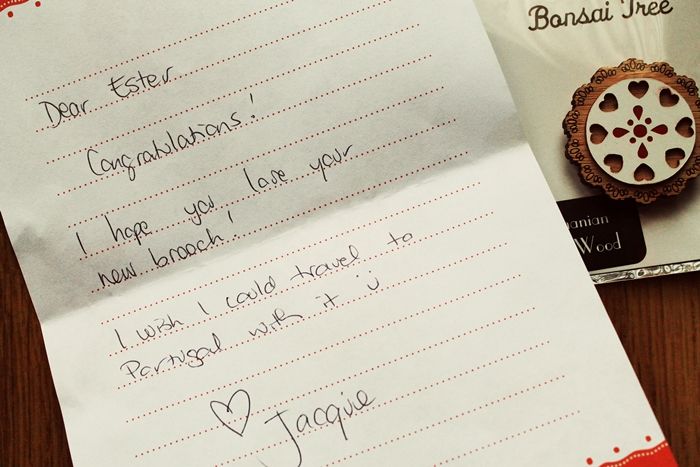 Bonsai Tree
Dear Ester
Congratulations!
I hope you love your
new brooch!
I wish I could travel to
Portugal with it
Jacquie
manian
Wood